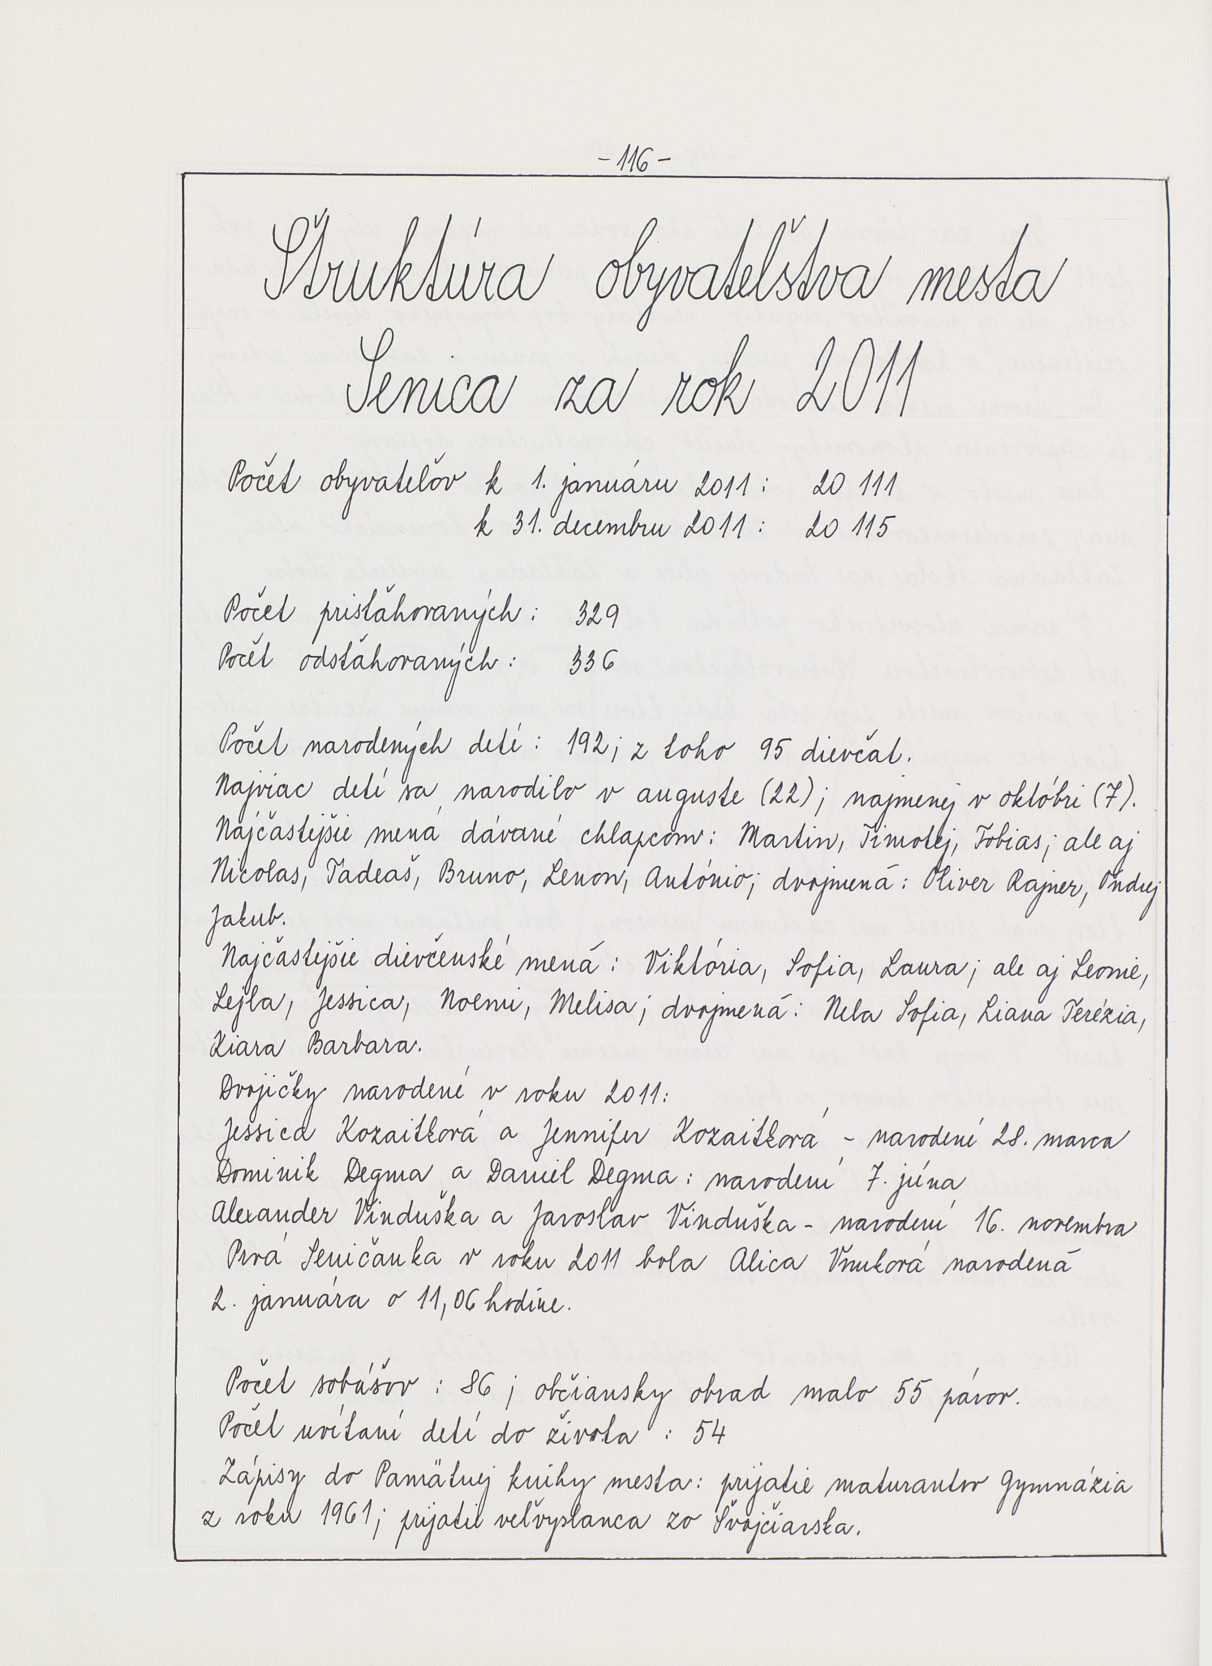 - 116 -
Štruktúra obyvateľstva mesta
Senica za rok 2011
Počet obyvateľov k 1. januáru 2011 : 20 111
k 31. decembru 2011 : 20 115
Počet prisťahovaných : 329
Počet odsťahovaných : 336
Počet narodených detí : 192; z toho 95 dievčat.
Najviac detí sa narodilo v auguste (22); najmenej v októbri (7).
Najčastejšie mená dávané chlapcom: Martin, Timotej, Tobias; ale aj
Nicolas, Tadeaš, Bruno, Lenon, António; dvojmená: Oliver Rajner, Ondrej
Jakub.
Najčastejšie dievčenské mená : Viktória, Sofia, Laura; ale aj Leonie,
Lejla, Jessica, Noemi, Melisa; dvojmená: Nela Sofia, Liana Terézia,
Kiara Barbara.
Dvojičky narodené v roku 2011:
Jessica Kozaitková a Jennifer Kozaitková - narodené 28. marca
Dominik Degma a Daniel Degma : narodení 7. júna
Alexander Vinduška a Jaroslav Vinduška - narodení 16. novembra
Prvá Seničanka v roku 2011 bola Alica Vnuková narodená
2. januára o 11,06 hodine.
Počet sobášov : 86 ; občiansky obrad malo 55 párov.
Počet uvítaní detí do života : 54
Zápisy do Pamätnej knihy mesta: prijatie maturantov Gymnázia
z roku 1961; prijatie veľvyslanca zo Švajčiarska.